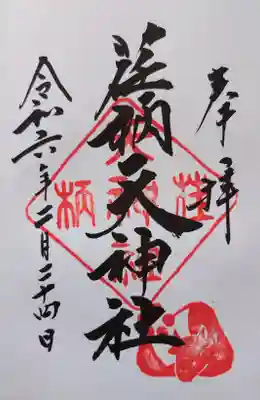 奉拝
荏柄天神社
令和六年二月二十四日